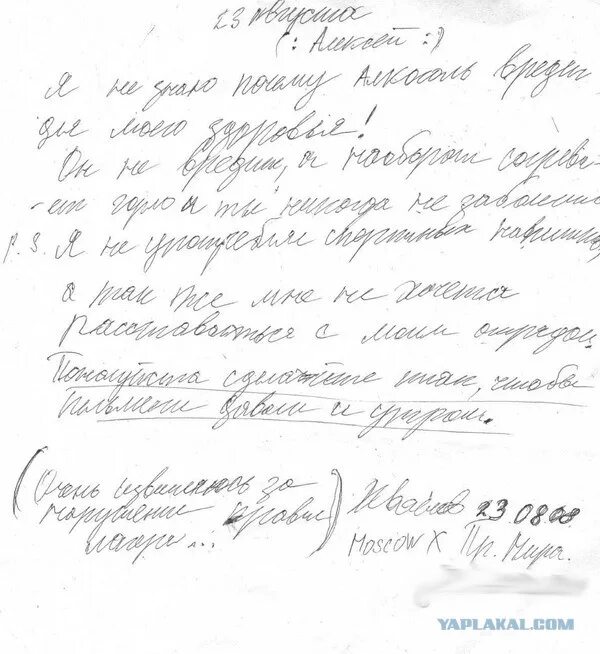 23 Августа
(: Алексей :)
Я не знаю почему Алкоголь вреден
для моего здоровья!
Он не вредит, а наоборот согрева-
-ет горло и ты никогда не заболеешь
P.S. Я не употреблял спортивных напитков,
а так же мне не хочется
расставаться с моим отрядом.
Пожалуйста сделайте так, чтобы
пельмени давали и утром.
(Очень извиняюсь за
нарушение правил
лагеря...)
23 08 08
MOSCOW X Пр. Мира.
YAPLAKAL.COM